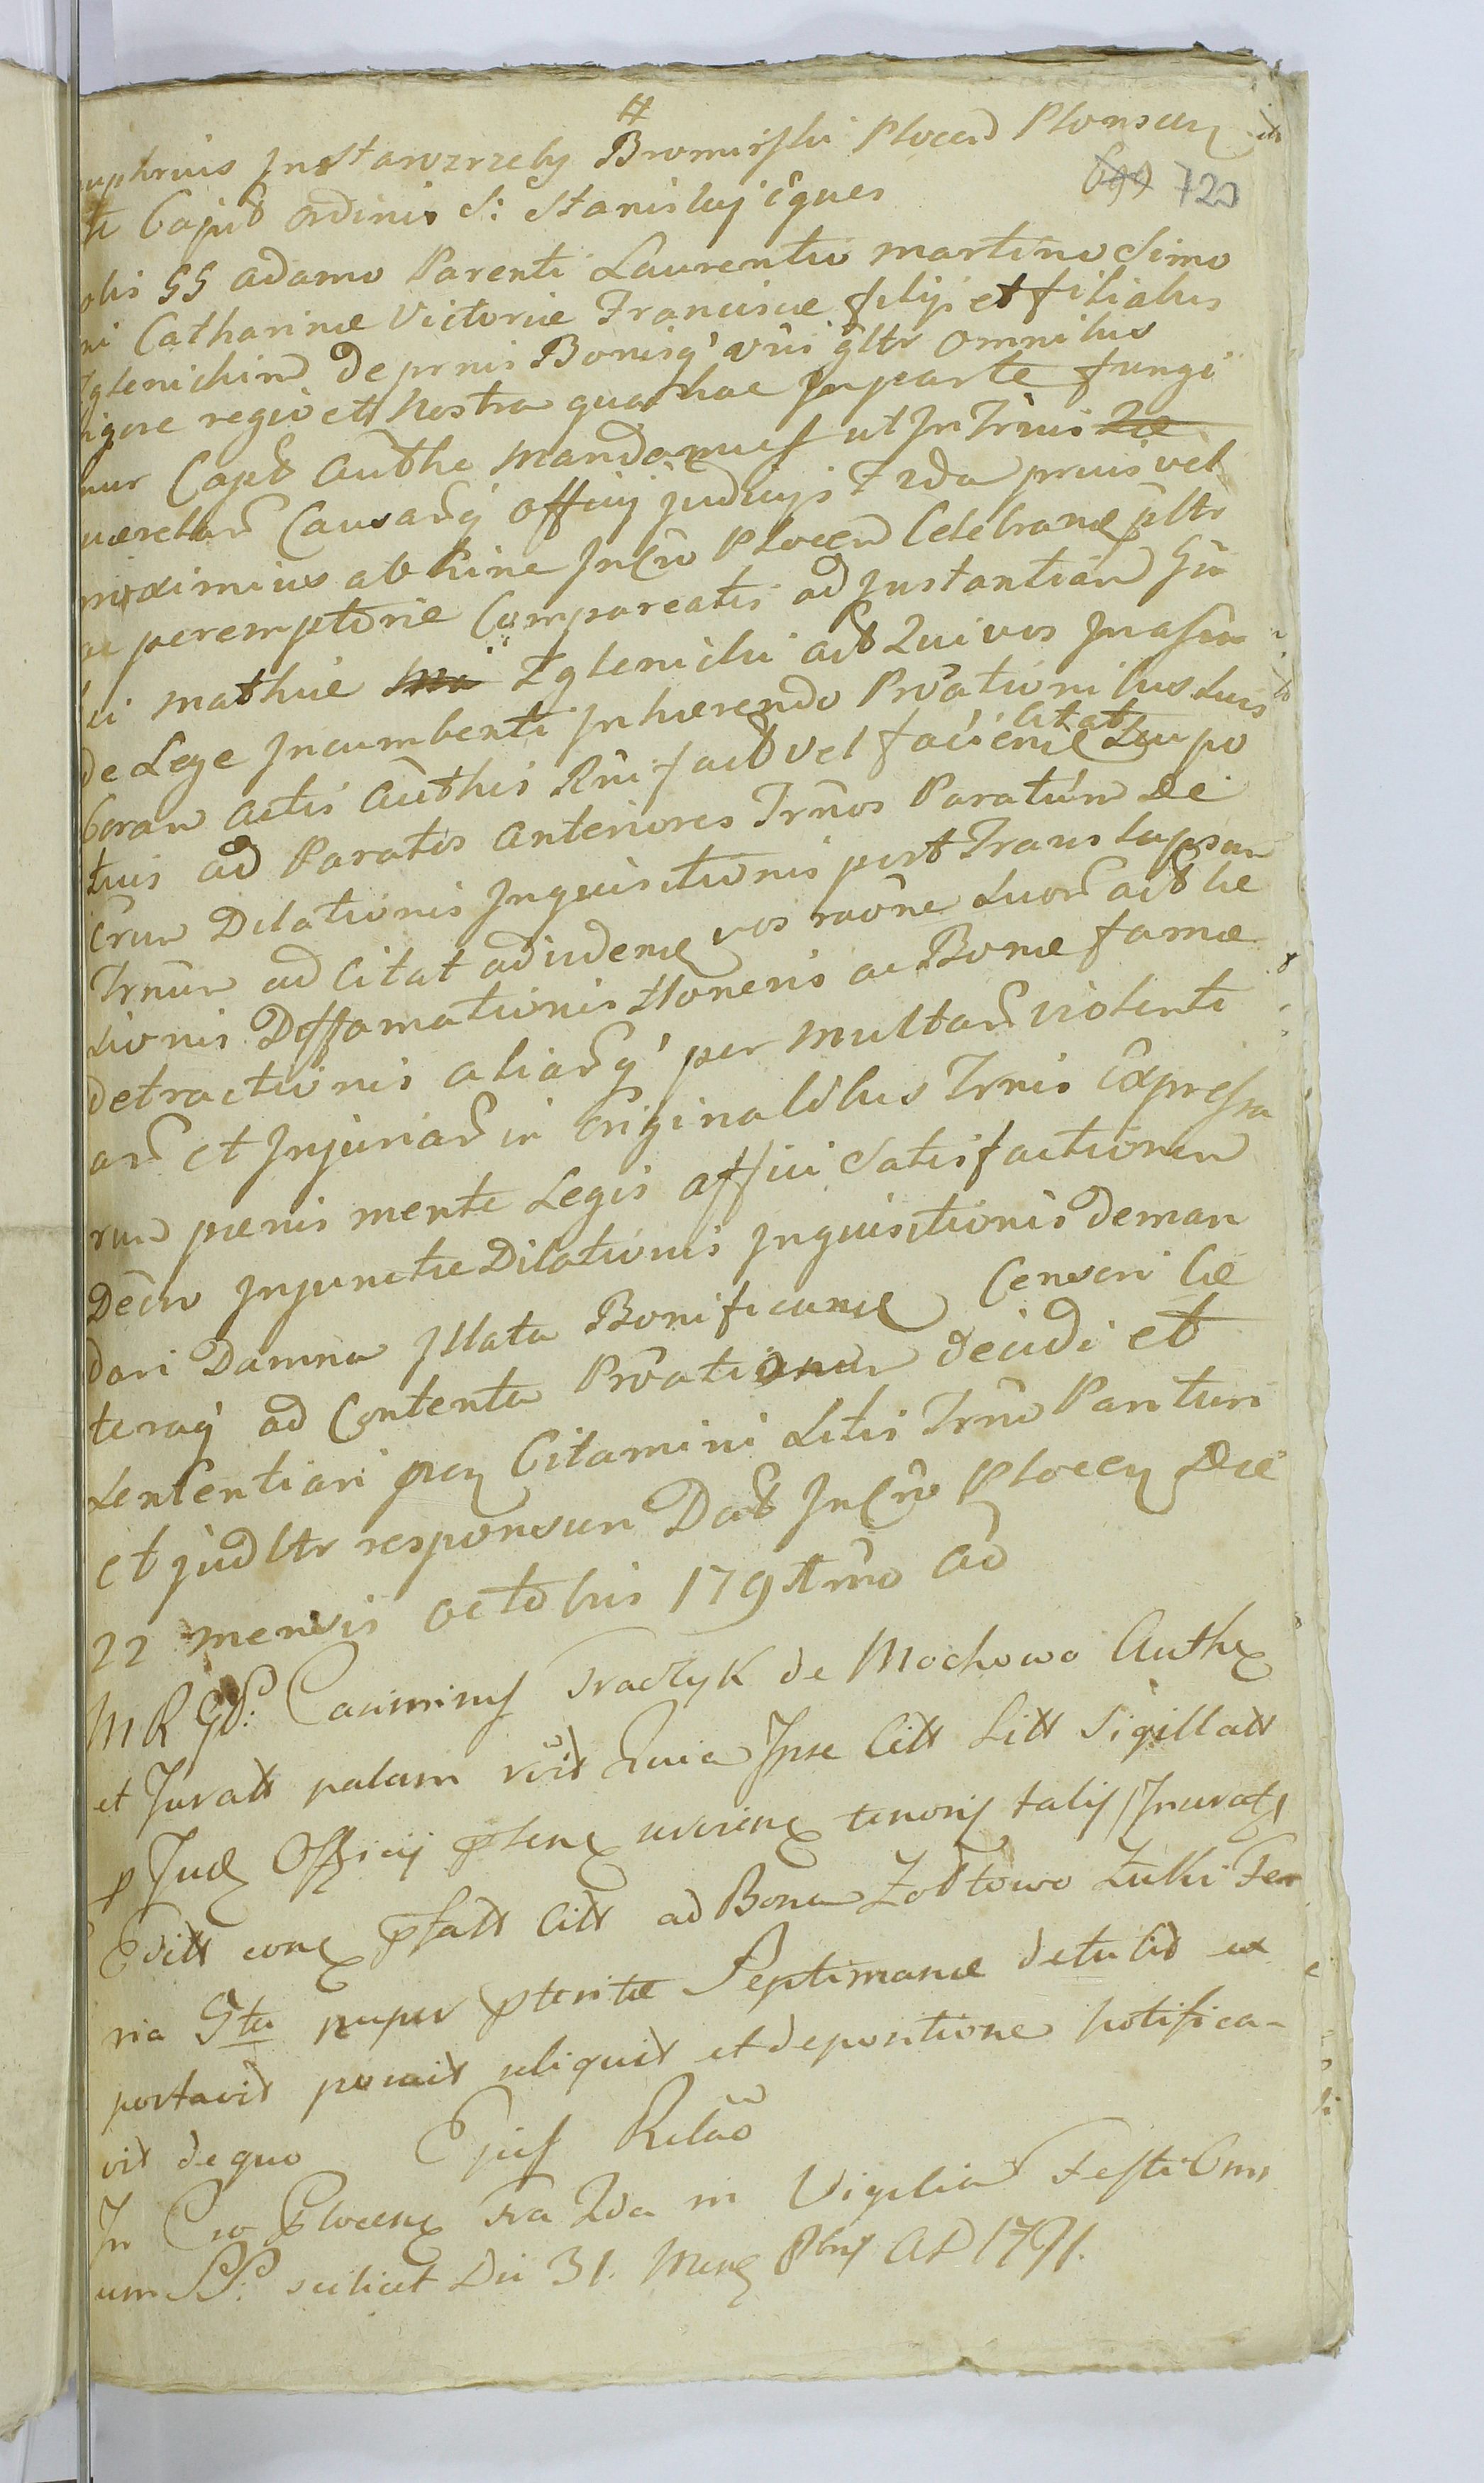 #
uphrius In Starozrzeby Bromirski Plocen Plonscen
Capit ordinis S: Stanislaj Eques
699 720
olis GG Adamo Parenti Laurentio Martino Simo
ni Catharinæ Victoriæ Franciscæ filiis et filiabus
Zglenickim De prnis Bonisq' vris gltr omnibus
igore regio et nostra qua hac In parte fungi
mur Capt Authe Mandamus ut In Trnis
uærelarum Causarq officij Judicijs Fr 2da prnis vel
proximius abhinc In Cro Plocen Celebran pltr
ac peremptorie Compareatis ad Instantiam Gn
li Mathiæ Zglenicki act Qui vos
de Lege Incumbenti Inhærendo Proationibus Suis
Coram actis authis Rni fact vel facien citat
tuis ad Paratos anteriores Trnos Paratum De
Crum Dilationis Inquisitionis post Translapsum
Trnum ad Citat adiuden vos raõne Suor act læ
sionis Diffamationis Honeris ac Bonæ famæ
detractionis aliarq' per multar violenti
ar et Injuriar in Originalibus Trnis Expressa
rum pænis mente Legis affici Satisfactionem
Decro Injunctæ Dilationis Inquisitionis deman
dari Damna Illata Bonifican Censeri Cæ
teraq ad Contenta Proationum decidi et
Sententiari pen Citamini Litis Trno Pariturı
et judltr responsuri Dat In Cro Plocen Die
22 mensis octobris 1791mo ad
M R Gd: Casimirus Tradtyk de Mochowo Authen
et Juratt palam rcit Quia Ipse Citt Litt Sigillatt
p Jud Officij Plcne userine tenoris talis Inuratq
Editt con Psatt Citt ad Bona Zoltowo Zulki Fe
ria 5ta nuper Pteritæ Septimanæ detulit ex
portavit posuit reliquit et depositione notifica-
vit de quo Ejus Relaõ
In Cro Plocen Fra 2da in Vigilia Festi Omı
um SS: scilicet Die 31. Men 8bris AD 1791.